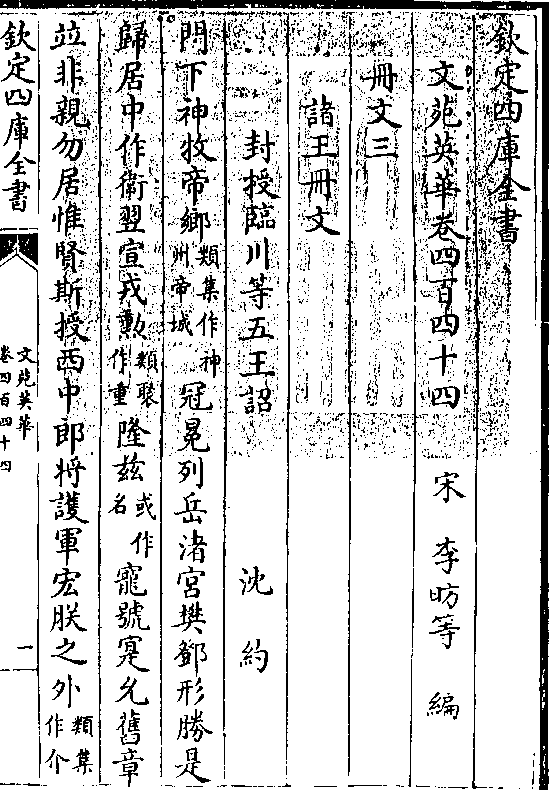 欽定四庫全書
文苑英華卷四百四十四　宋　李昉等　編
冊文三
諸王冊文
封授臨川等五王詔　沈約
門下神牧帝鄉類集作神州帝城冠冕列岳渚宮樊鄧形勝是
歸居中作衛翌宣戎勲類聚作重隆兹或作名寵號寔允舊章
並非親勿居惟賢斯授西中郎將護軍宏朕之外類集作介
欽定四庫全書
文苑英華
卷四百四十四
一